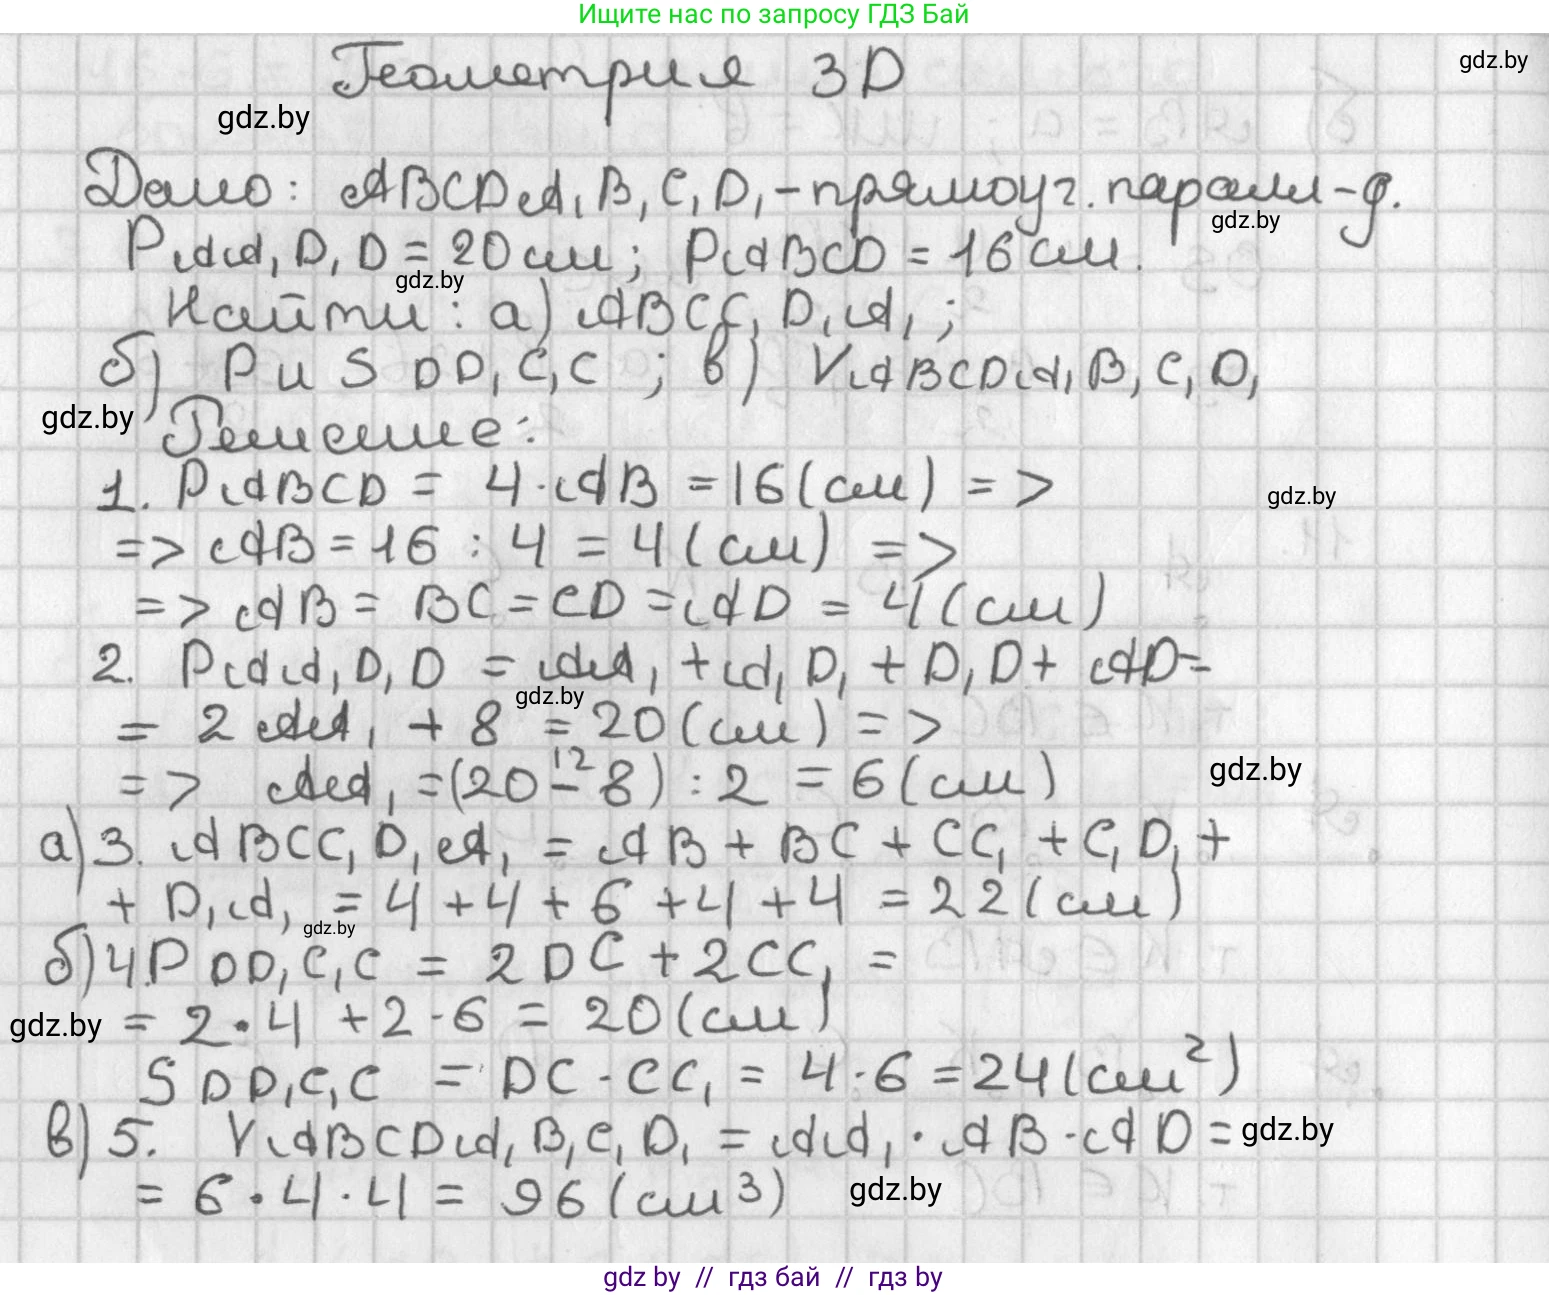 Ищите нас по запросу ГДЗ Бай
Геометрия 3D
gdz.by
gdz.by
Дано: ABCDA₁B₁C₁D₁-прямоуг. паралл-д.
gdz.by
PAA₁D₁D = 20 см; PABCD = 16 см.
gdz.by
Найти: а) ABCC₁D₁A₁;
б) P и S DD₁C₁C; в) VABCDA₁B₁C₁D₁
gdz.by
Решение:
1. PABCD = 4·AB = 16(см) =>
gdz.by
=> AB = 16 : 4 = 4(см) =>
=> AB = BC = CD = AD = 4(см)
2. PAA₁D₁D = AA₁ + A₁D₁ + D₁D + AD =
gdz.by
= 2AA₁ + 8 = 20(см) =>
12
=> AA₁ = (20 - 8) : 2 = 6(см)
gdz.by
а) 3. ABCC₁D₁A₁ = AB + BC + CC₁ + C₁D₁ +
+ D₁A₁ = 4 + 4 + 6 + 4 + 4 = 22(см)
gdz.by
б) 4. P DD₁C₁C = 2DC + 2CC₁ =
gdz.by
= 2·4 + 2·6 = 20(см)
S DD₁C₁C = DC·CC₁ = 4·6 = 24(см²)
в) 5. VABCDA₁B₁C₁D₁ = AA₁·AB·AD =
gdz.by
= 6·4·4 = 96(см³)
gdz.by
gdz by // гдз бай // гдз by